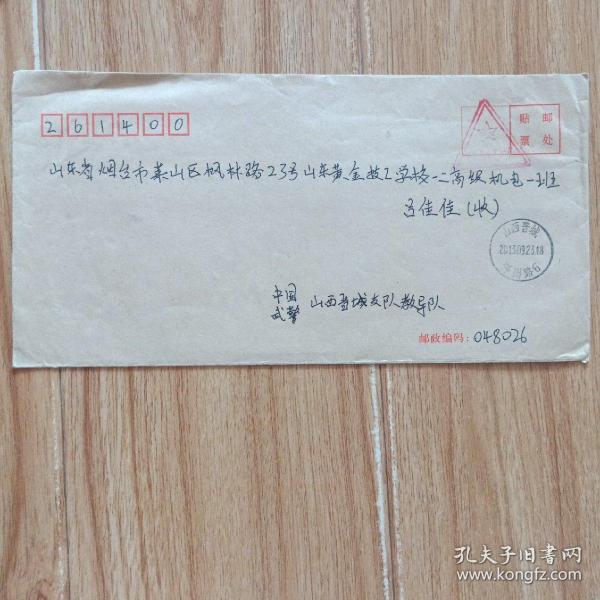 261400
贴 邮
票 处
山东省烟台市莱山区枫林路23号山东黄金技工学校一二高级机电一班
吕佳佳(收)
山西晋城
2013.09.23.18
中国
武警
山西晋城支队教导队
邮政编码:048026
孔夫子旧书网
www.kongfz.com